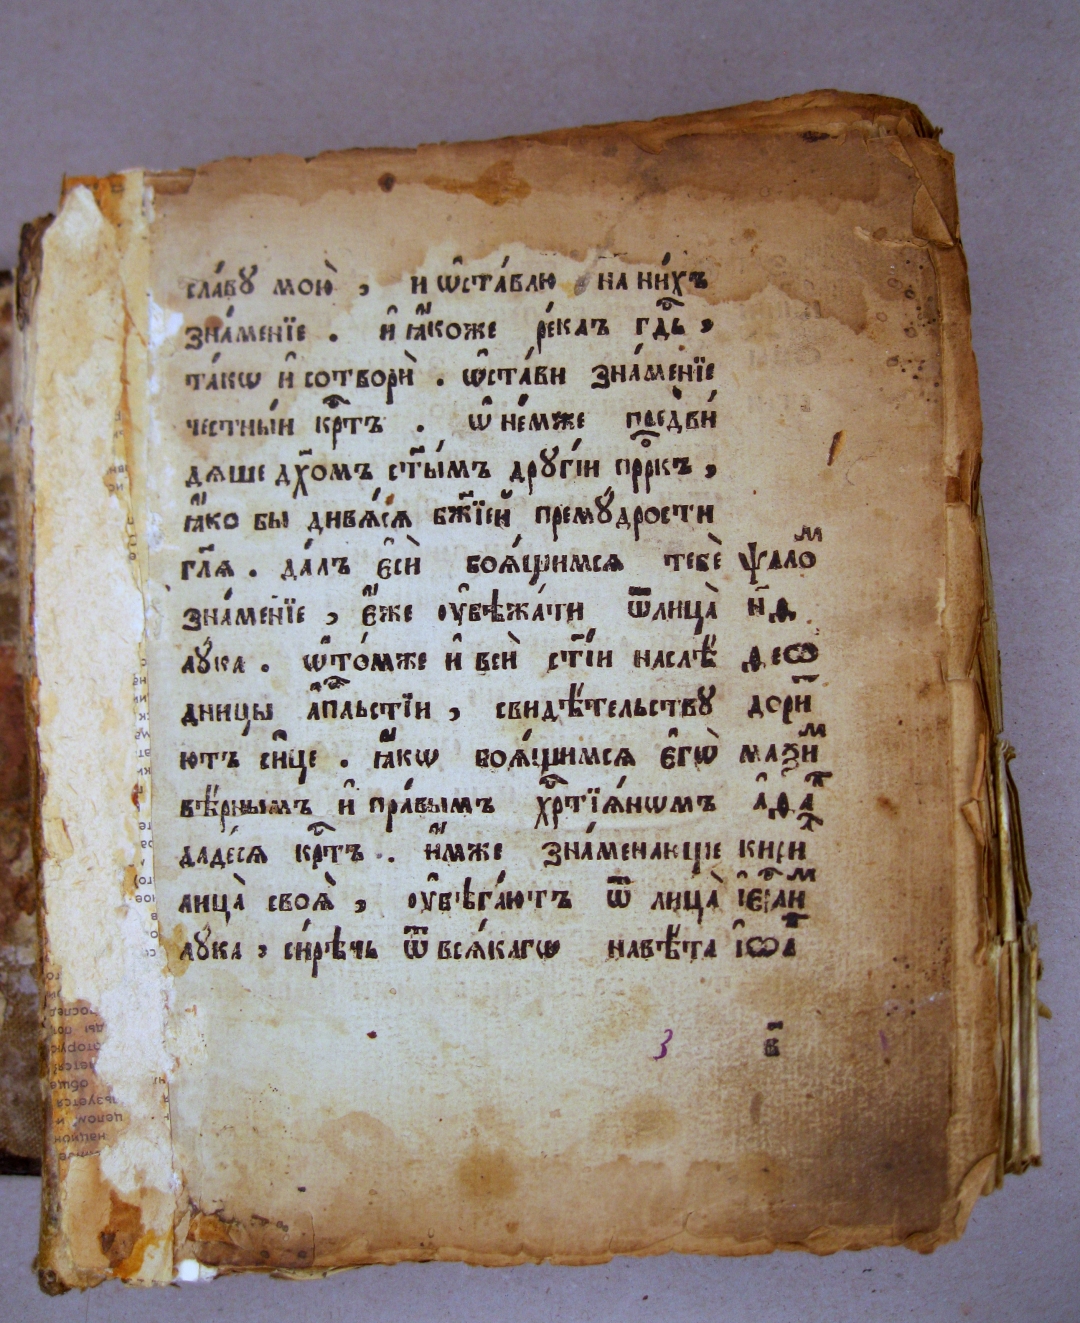 сла́вѹ мою̀, и ѡ҆ста́влю на ни́хъ
зна́менїе. и҆ ꙗ҆́коже ре́качъ гд҇ь,
та́кѡ и҆ сотворѝ. ѡ҆ста́ви зна́менїе
честны́и кр҇тъ. ѡ҆ не́мже предви́
дяше дх҃омъ ст҃ы́мъ дрꙋгі́и прⷪ҇ркъ,
ꙗ҆́ко бы дивѧ́сѧ бж҃їей премꙋ́дрости
гл҃ѧ. да́лъ є҆сѝ боѧ́щимсѧ тебѐ ѱалоⷨ
зна́менїе, є҆́же ᲂу҆бѣжа́ти ѿлица̀ н҃ѳ
лꙋ́ка. ѡ҆ то́мже и҆ всѝ ст҃і́и наслѣ́ ѳеѡ
дницы а҆пⷭ҇льстїи, свидѣ́тельствꙋ дори̑
ютъ си́це. ꙗ҆́кѡ боѧ́щимсѧ є҆гѡ̀ мазиⷨ
вѣ́рнымъ и҆ пра́вымъ хрⷭ҇тїѧ́нѡмъ а҆ѳаⷩ҇
даде́сѧ крⷭ҇тъ. и҆́мже зна́менающе кири
лица̀ своѧ̀, ᲂу҆бѣга́ютъ ѿ лица̀ і҆єⷭ҇лиⷨ
лꙋ́ка, си́рѣчь ѿ всѧ́кагѡ навѣ́та і҆ѡаⷩ҇
3 в҃